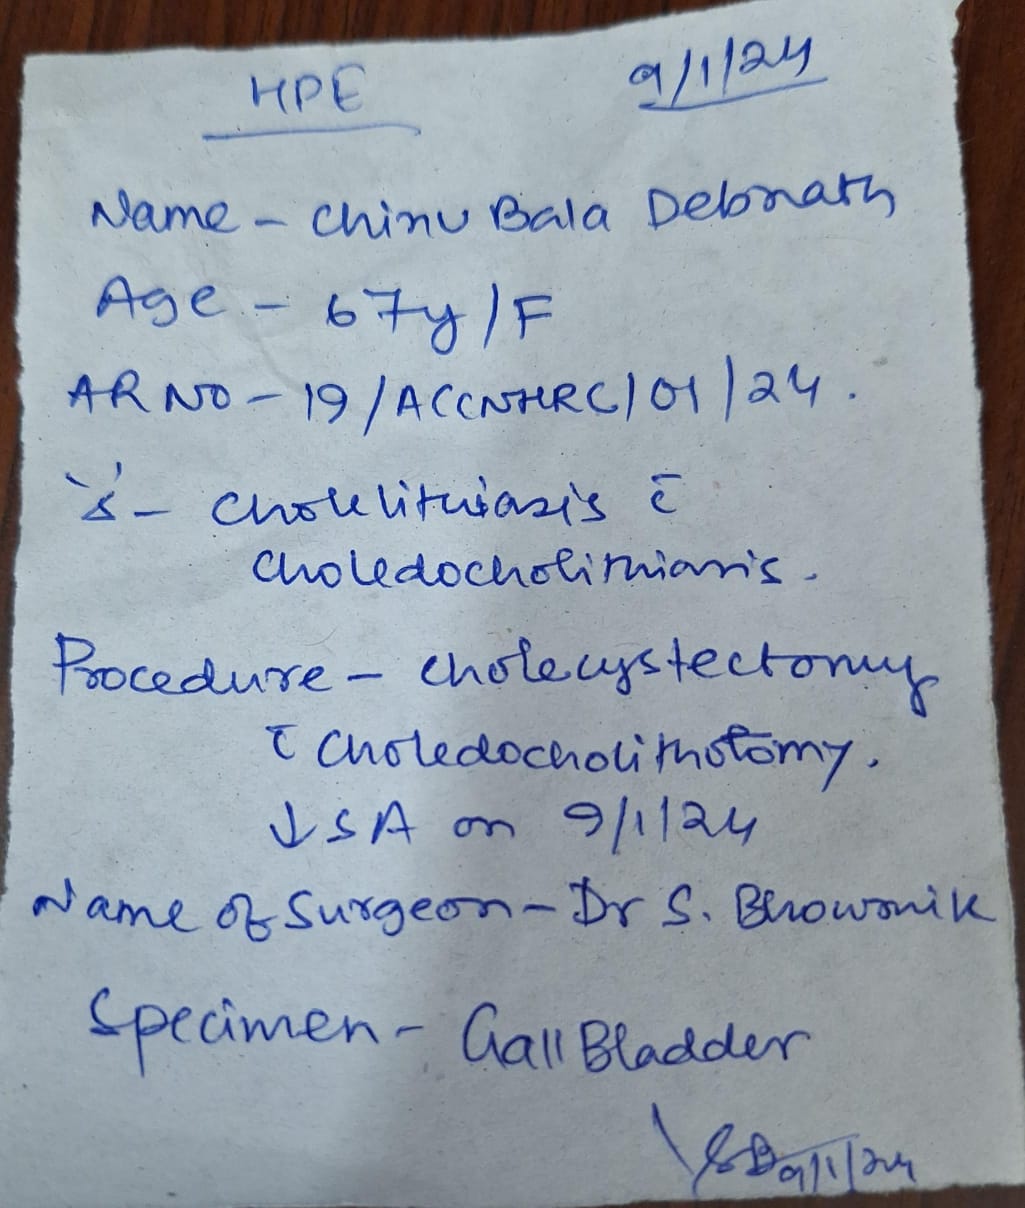 HPE 9/1/24
Name - Chinu Bala Debnath
Age - 67y/F
AR NO - 19/ACCNHRC/01/24.
'δ' - Cholelithiasis c̄
Choledocholithiasis.
Procedure - Cholecystectomy
c̄ Choledocholithotomy.
↓ SA on 9/1/24
Name of Surgeon - Dr S. Bhowmik
Specimen - Gall Bladder
9/1/24